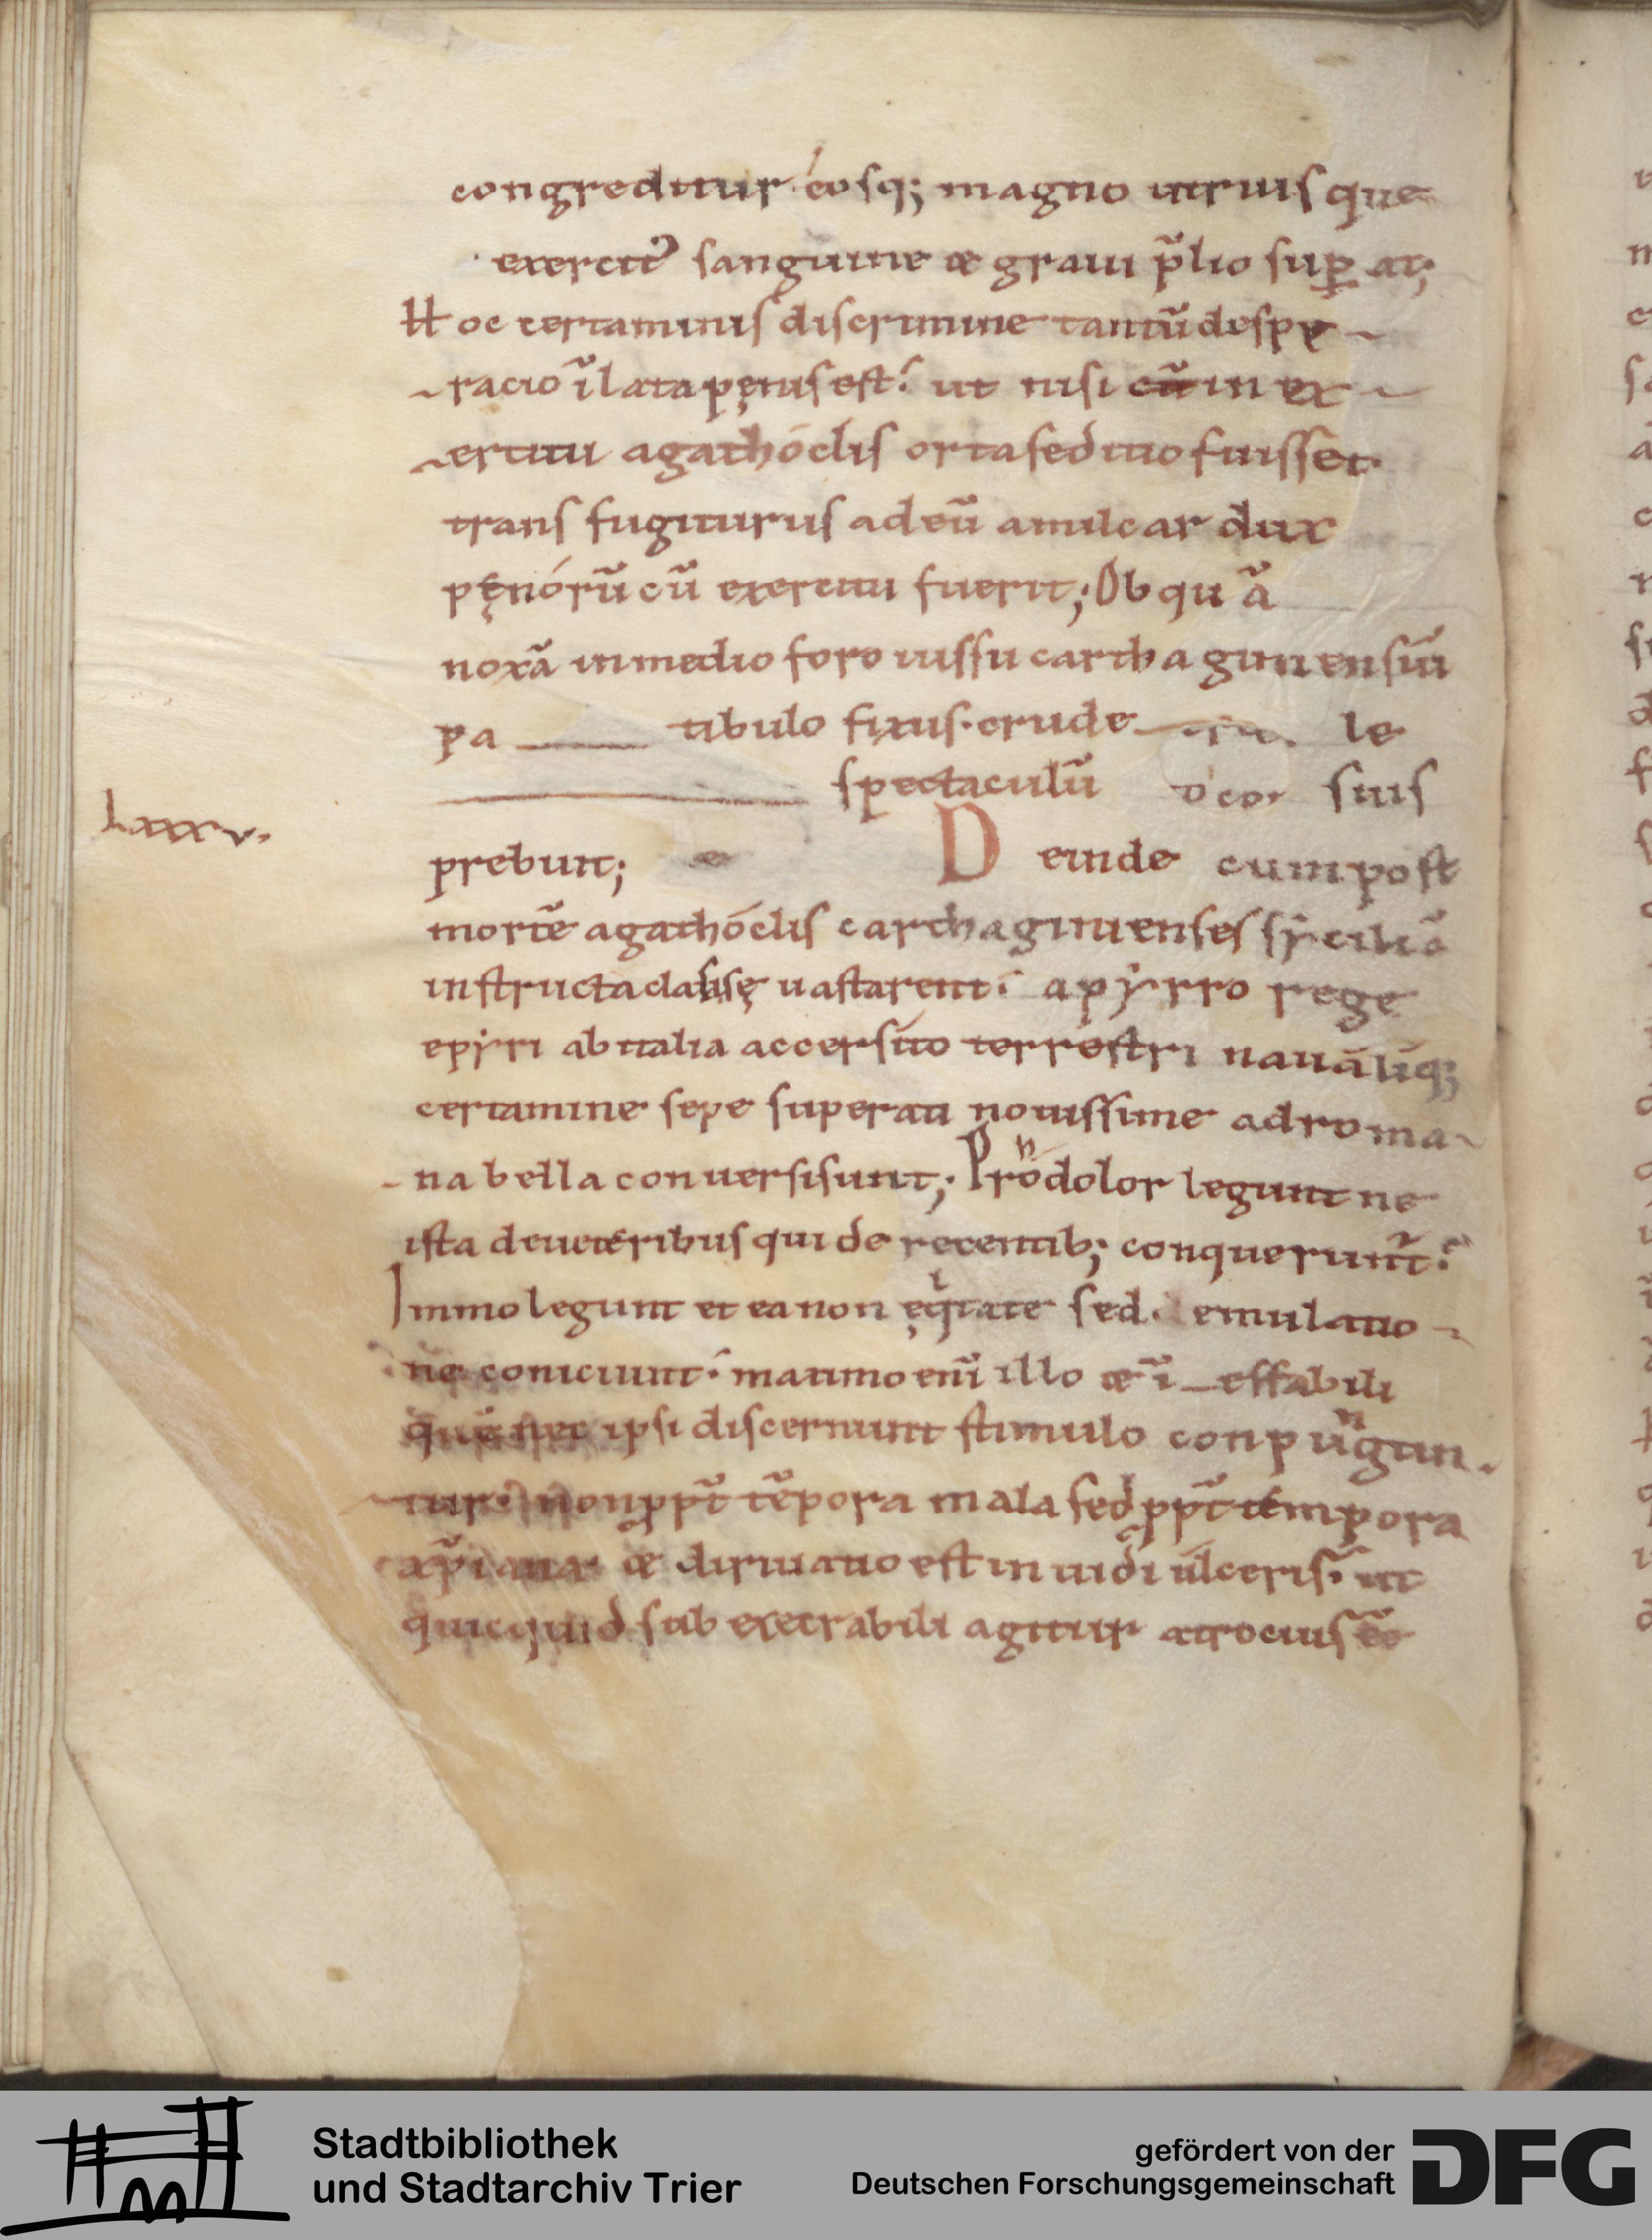 congreditur eosq; magno utriusque
exercit᾽ sanguine & graui p̃lio sup̱ at;
Hoc certaminis discrimine tantū despe
racio ĩlata pęnis est. ut nisi cū in ex
ercitu agathóclis orta seditio fuisset
transfugiturus ad eū amilcar dux
pęnórū cū exercitu fuerit; Ob quā
noxā in medio foro iussu carthaginensiū
pa tibulo fixus. crude le
spectaculū suis
Lxxxv.
prebuit; Deinde cum post
mortē agathóclis carthaginienses sẏciliā
instructa classę uastarent. a pẏrro rege
epẏri ab italia accersito terrestri naualiq;
certamine sepe superati nouissime ad roma
na bella conuersi sunt; Pro dolor legunt ne
ista de ueteribus qui de recentib; conquerunt̃.
Immo legunt et ea non ęq̇tate sed emulatio
ne coniciunt. maximo enī illo & ĩ effabili
quē nec ipsi discernunt stimulo conpungun
tur. non ꝓpt̃ tēpora mala sed ꝓpt̃ tempora
xp̃iana. & diriuatio est inuidi ulceris. ut
quicquid sub execrabili agitur atrocius eē
Stadtbibliothek
und Stadtarchiv Trier
gefördert von der
Deutschen Forschungsgemeinschaft
DFG